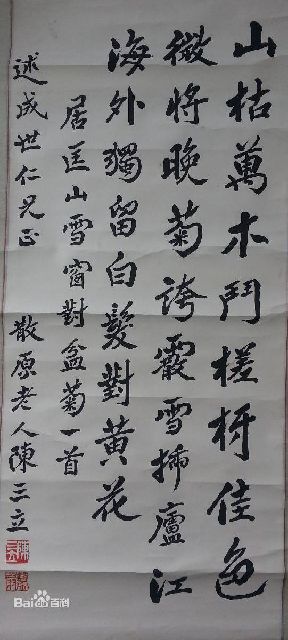 山枯萬木鬥槎枒佳色
微將晚菊誇霰雪插廬江
海外獨留白髮對黃花
居匡山雪窗對盆菊一首
述成世仁兄正 散原老人陳三立
Bai du 百科